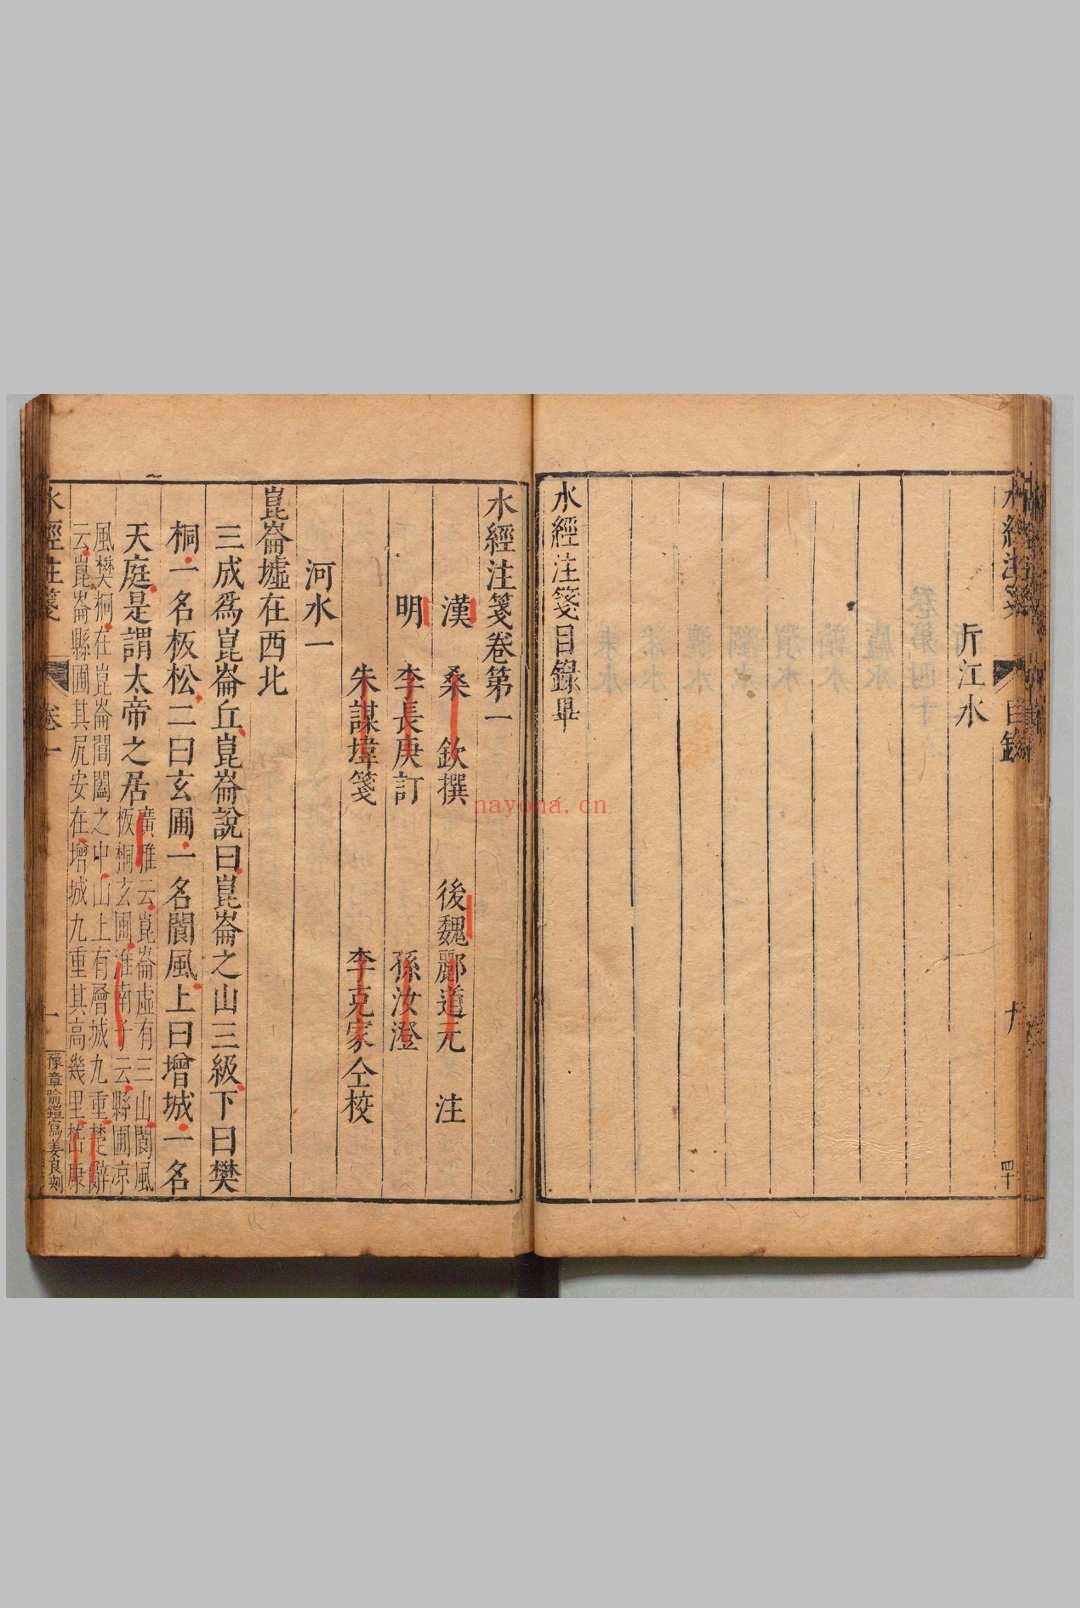 斤江水
水經注箋目錄畢
水經注箋卷第一
漢　桑　欽撰　後魏酈道元　注
明　李長庚訂　孫汝澄
朱謀㙔箋　李克家仝校
河水一
崑崙墟在西北
三成爲崑崙丘崑崙說曰崑崙之山三級下曰樊
桐一名板松二曰玄圃一名閬風上曰增城一名
天庭是謂太帝之居
廣雅云崑崙虛有三山閬風
板桐玄圃淮南子云縣圃凉
風樊桐在崑崙閶闔之中山上有層城九重楚辭
云崑崙縣圃其凥安在增城九重其高幾里嵇康
水經注箋　卷一　一
豫章喻鎧寫姜良刻
nayona.cn